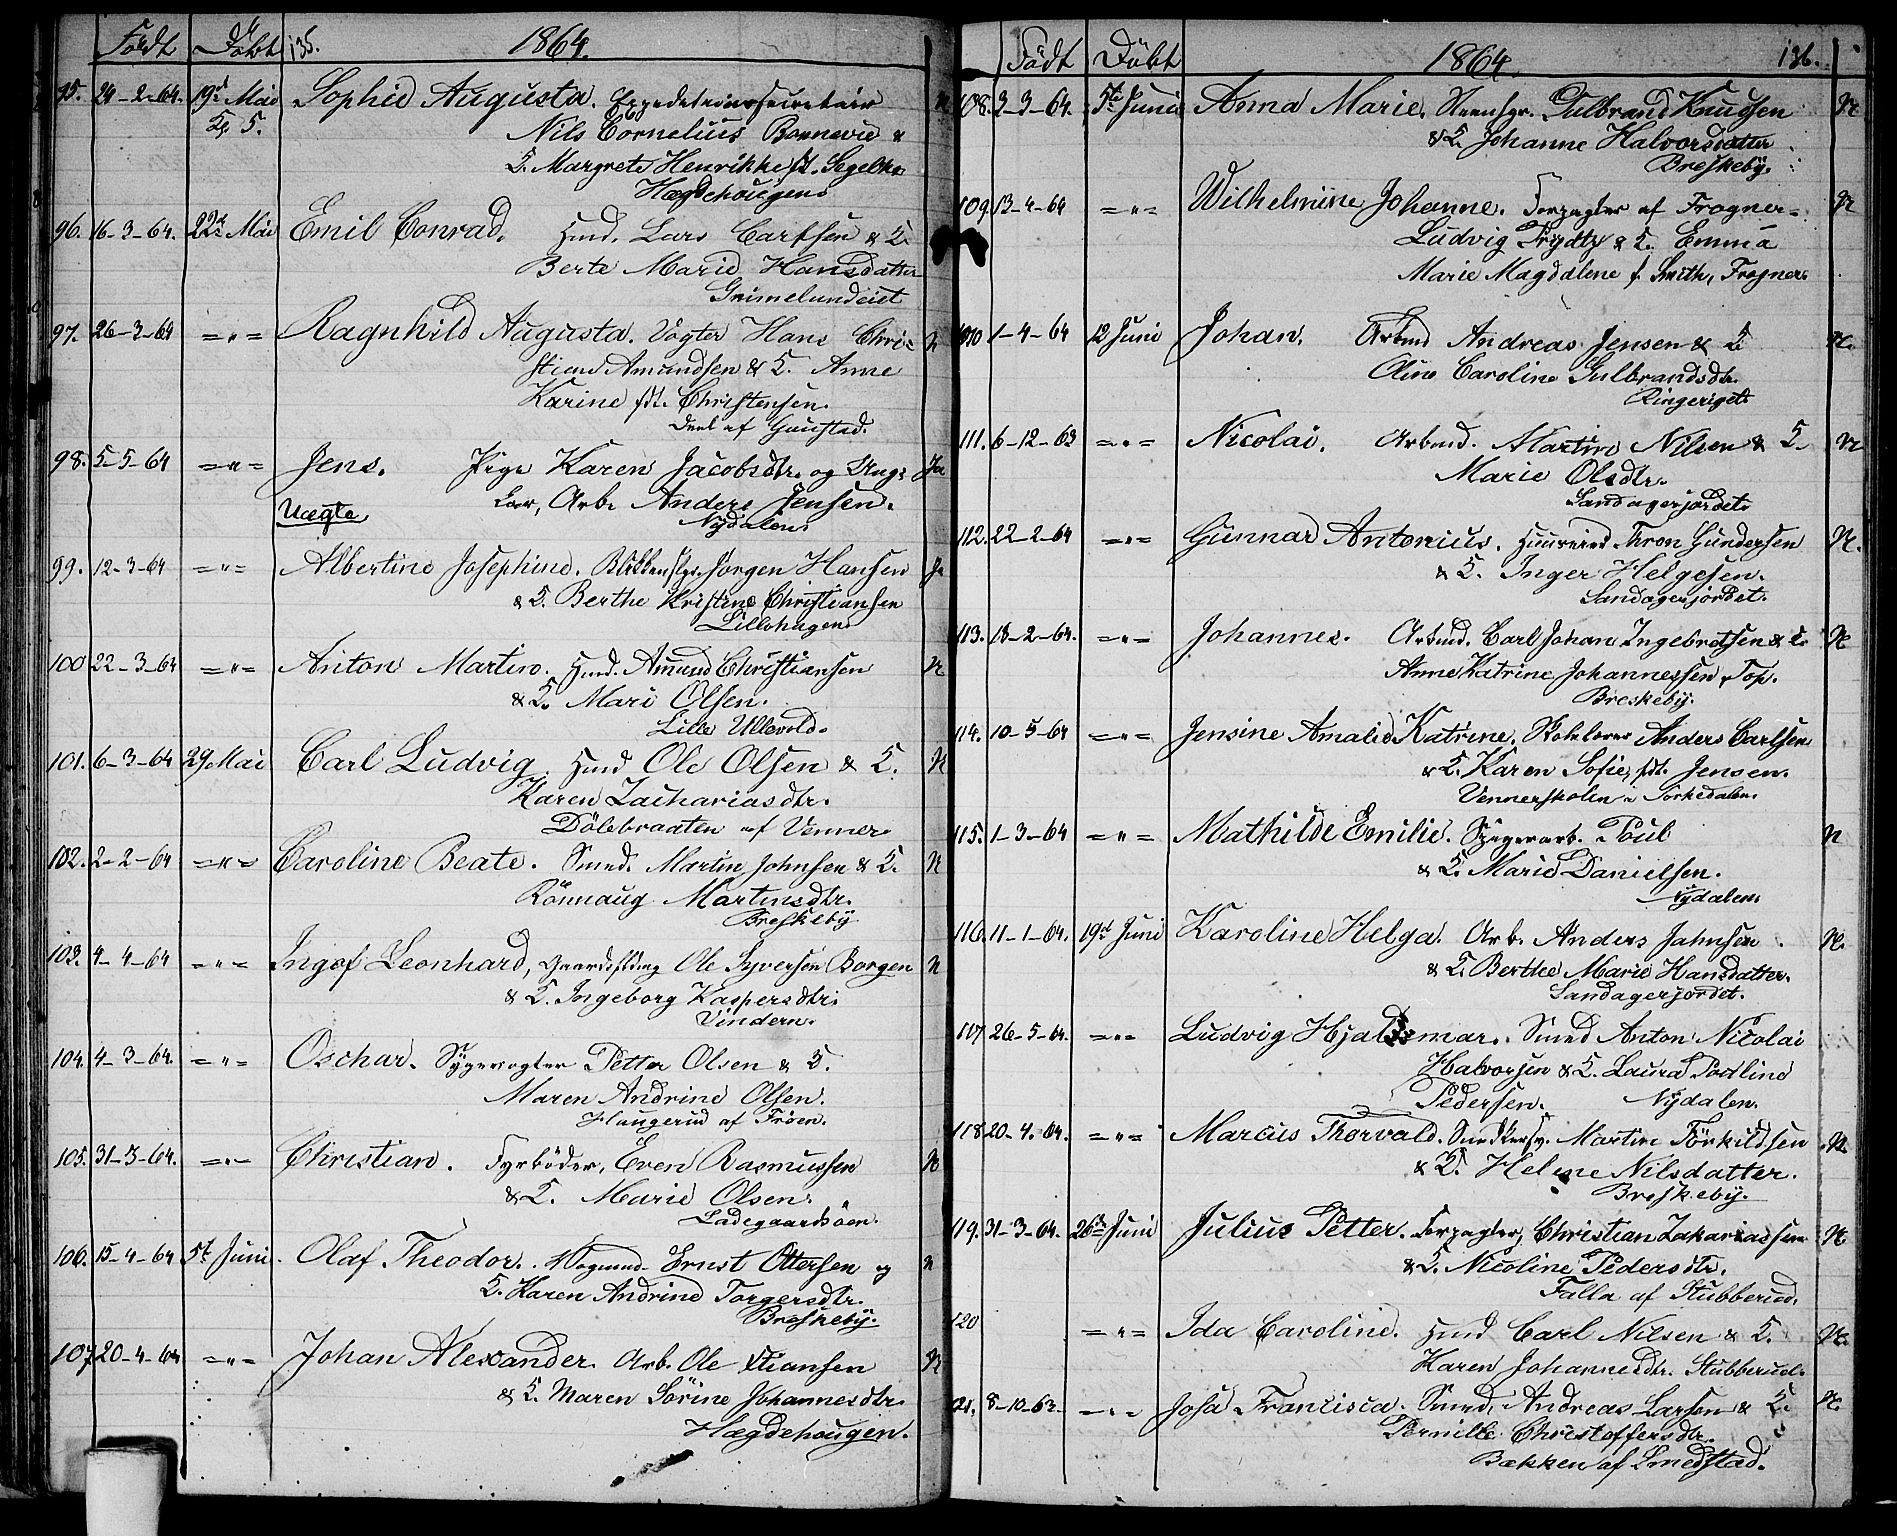 Födt Döbt 135. 1864.
95. 24-2-64. 19d Mai Sophie Augusta. Expeditionssecretair N
Kl 5. Nils Cornelius Bonnevie &
K. Margrete Henrikke fdt. Segelke
Hægdehougen.
96. 16-3-64. 22d Mai Emil Conrad. Hmd. Lars Carlsen & K.
Berte Marie Hansdatter
Grimelundeiet
97. 26-3-64 ="= Ragnhild Augusta. Vogter Hans Chri- N
stian Amundsen & K. Anne
Karine fdt. Christensen.
Deel af Gaustad.
98. 5-5-64 ="= Jens. Pige Karen Jacobsdtr. og Ung- Ja
Uægte kar, Arb. Anders Jensen.
Nydalen.
99. 12-3-64 ="= Albertine Josephine. Blikkenslgr. Jørgen Hansen Ja
& K. Berthe Kristine Christiansen
Lillohagen.
100 22-3-64 ="= Anton Martin. Hmd. Amund Christiansen N
& K. Mari Olsen.
Lille Ullevold.
101. 6-3-64 29 Mai Carl Ludvig. Hmd Ole Olsen & K. N
Karen Zachariasdtr.
Dölebraaten af Venner
102. 2-2-64 ="= Caroline Beate. Smed. Martin Johnsen & K. N
Rönnaug Martinsdtr.
Breskeby
103. 4-4-64 ="= Ingof Leonhard, Ole Syversen Borgen N
& K. Ingeborg Kaspersdtr.
Vindern.
104. 4-3-64 ="= Oschar. Sygevogter Petter Olsen & K.
Maren Andrine Olsen.
Haugerud af Fröen.
105. 31-3-64. ="= Christian. Fyrböder, Even Rasmussen N
& K. Marie Olsen.
Ladegaardsöen.
106. 15-4-64 5t Juni. Olaf Theodor. Vognmd. Ernst Ottersen og N
K. Karen Andrine Torgersdtr.
Breskeby.
107. 20-4-64 ="= Johan Alexander. Arb. Ole Stiansen N
& K. Maren Sörine Johannesdtr.
Hægdehougen.
Födt Döbt 1864. 136.
108. 3-3-64. 5te Juni Anna Marie. Steenhgr. Gulbrand Knudsen N
& K. Johanne Halvorsdatter
Breskeby.
109. 13-4-64 ="= Wilhelmine Johanne. Forpagter af Frogner- N
Ludvig Trydtz & K. Emma
Marie Magdalene f. Smith, Frogner.
110 1-4-64 12 Juni Johan. Arbmd Andreas Jensen & K N.
Oline Caroline Gulbrandsdtr.
Ringeriget.
111. 6-12-63 ="= Nicolai. Arbmd. Martin Nilsen & K. N
Marie Olsdtr.
Sandagerjordet.
112. 22-2-64 ="= Gunnar Antonius. Huusmnd Thron Gundersen N.
& K. Inger Helgesen.
Sandagerjordet.
113. 18-2-64. ="= Johannes. Arbmd. Carl Johan Ingebretsen & K. N
Anne Katrine Johannessen, Top.
Breskeby.
114. 10-5-64 ="= Jensine Amalie Katrine. Skolelærer Anders Carlsen
& K. Karen Sofie, fdt. Jensen.
Vennerskolen i Sörkedalen.
115. 1-3-64 ="= Mathilde Emilie. Spigerarb. Poul N
& K. Marie Danielsen.
Nydalen.
116. 11-1-64. 19d Juni Karoline Helga. Arb. Anders Jahnsen N.
& K. Berthe Marie Hansdatter.
Sandagerjordet.
117 26-5-64. ="= Ludvig Hjalmar. Smed Anton Nicolai
Halvorsen & K. Laura Pauline
Pedersen. Nydalen.
118 20-4-64. ="= Marcus Thorvald. Snedkersv. Martin Törkildsen N.
& K. Helene Nilsdatter.
Breskeby.
119. 31-3-64. 26de Juni Julius Petter. Forpagter, Christian Zakariassen N.
& K. Nicoline Pedersdtr.
Falla af Stubberud.
120 ="= Ida Caroline. Hmd Carl Nilsen & K. N.
Karen Johannesdtr. Stubberud.
21. 8-10-63. ="= Josa Francisca. Smed, Andreas Larsen & K. N.
Pernille Christoffersdtr.
Bækken af Smedstad.